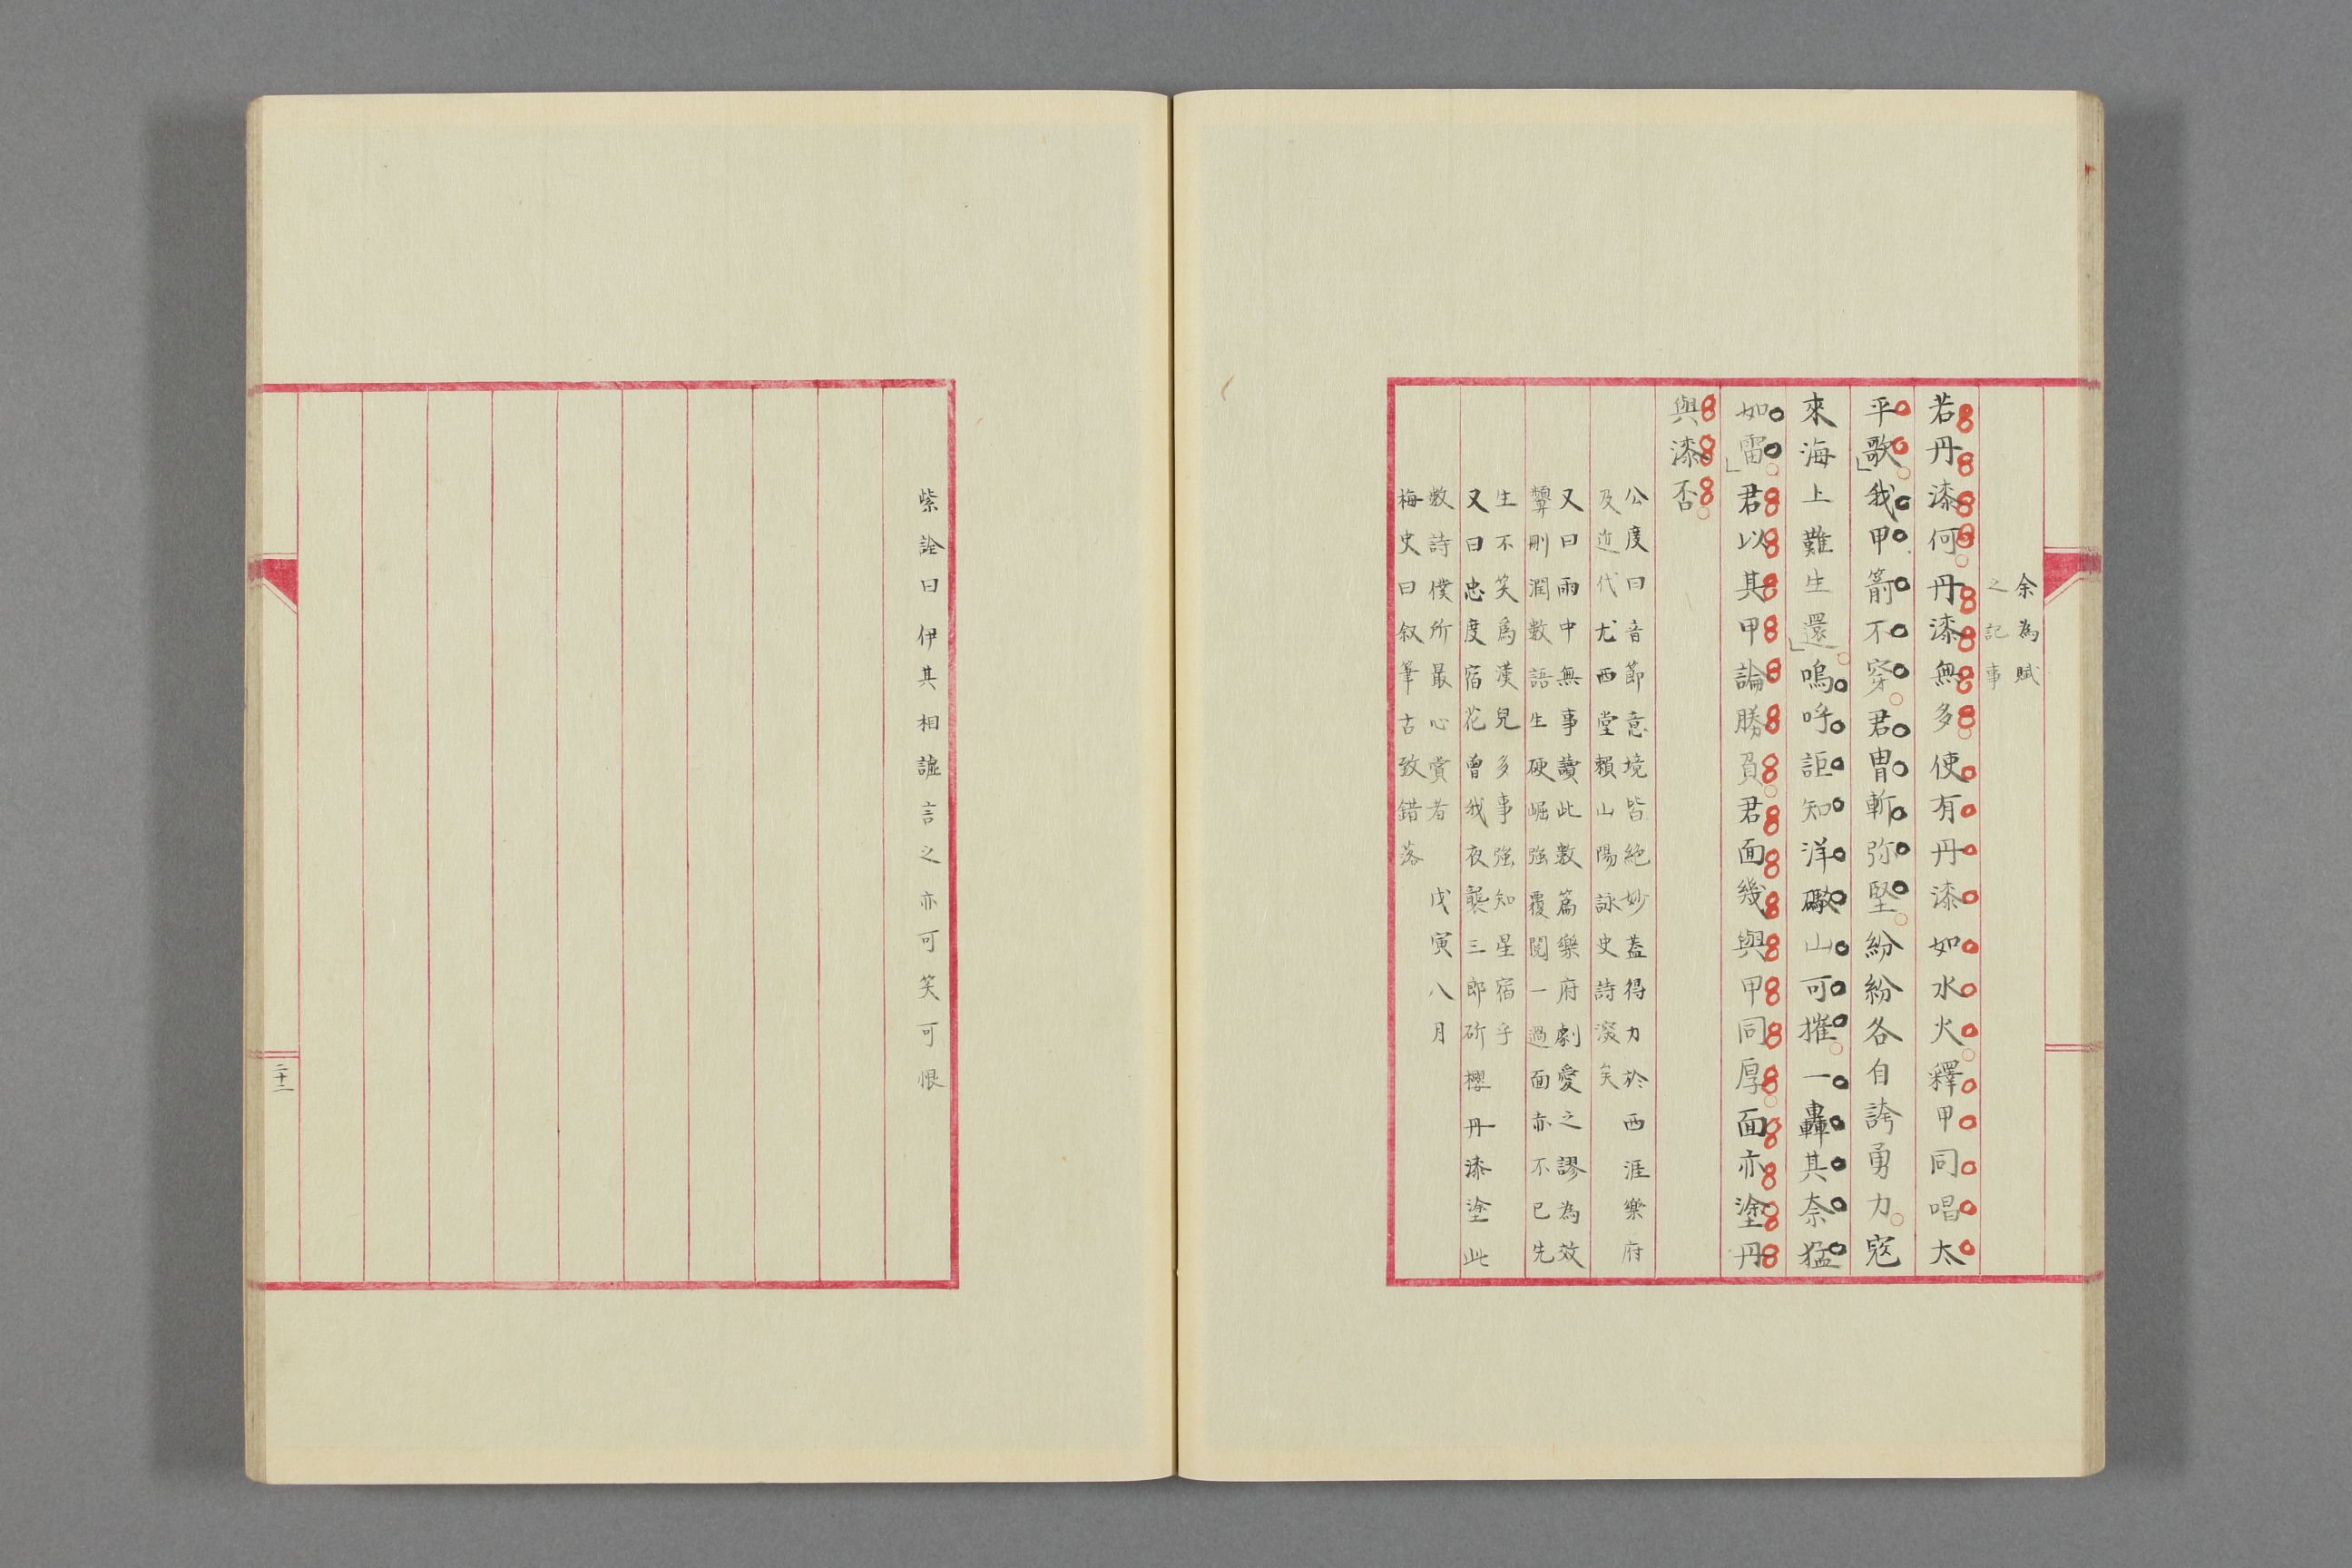 余為賦
之記事
若丹漆何丹漆無多使有丹漆如水火釋甲同唱太
平歌我甲箭不穿君冑斬弥堅紛紛各自誇勇力寇
來海上難生還嗚呼詎知洋礮山可摧一轟其奈猛
如雷君以其甲論勝負君面幾與甲同厚面亦塗丹
與漆否
公度曰音節意境皆絶妙蓋得力於西涯樂府
及近代尤西堂賴山陽詠史詩深矣
又曰雨中無事讀此數篇樂府劇愛之謬為效
顰刪潤數語生硬崛強覆閱一過面亦不已先
生不笑為漢兒多事強知星宿乎
又曰忠度宿花曾我夜襲三郎斫櫻丹漆塗此
數詩僕所最心賞者 戊寅八月
梅史曰叙筆古致錯落
紫詮曰伊其相謔言之亦可笑可恨
二十二